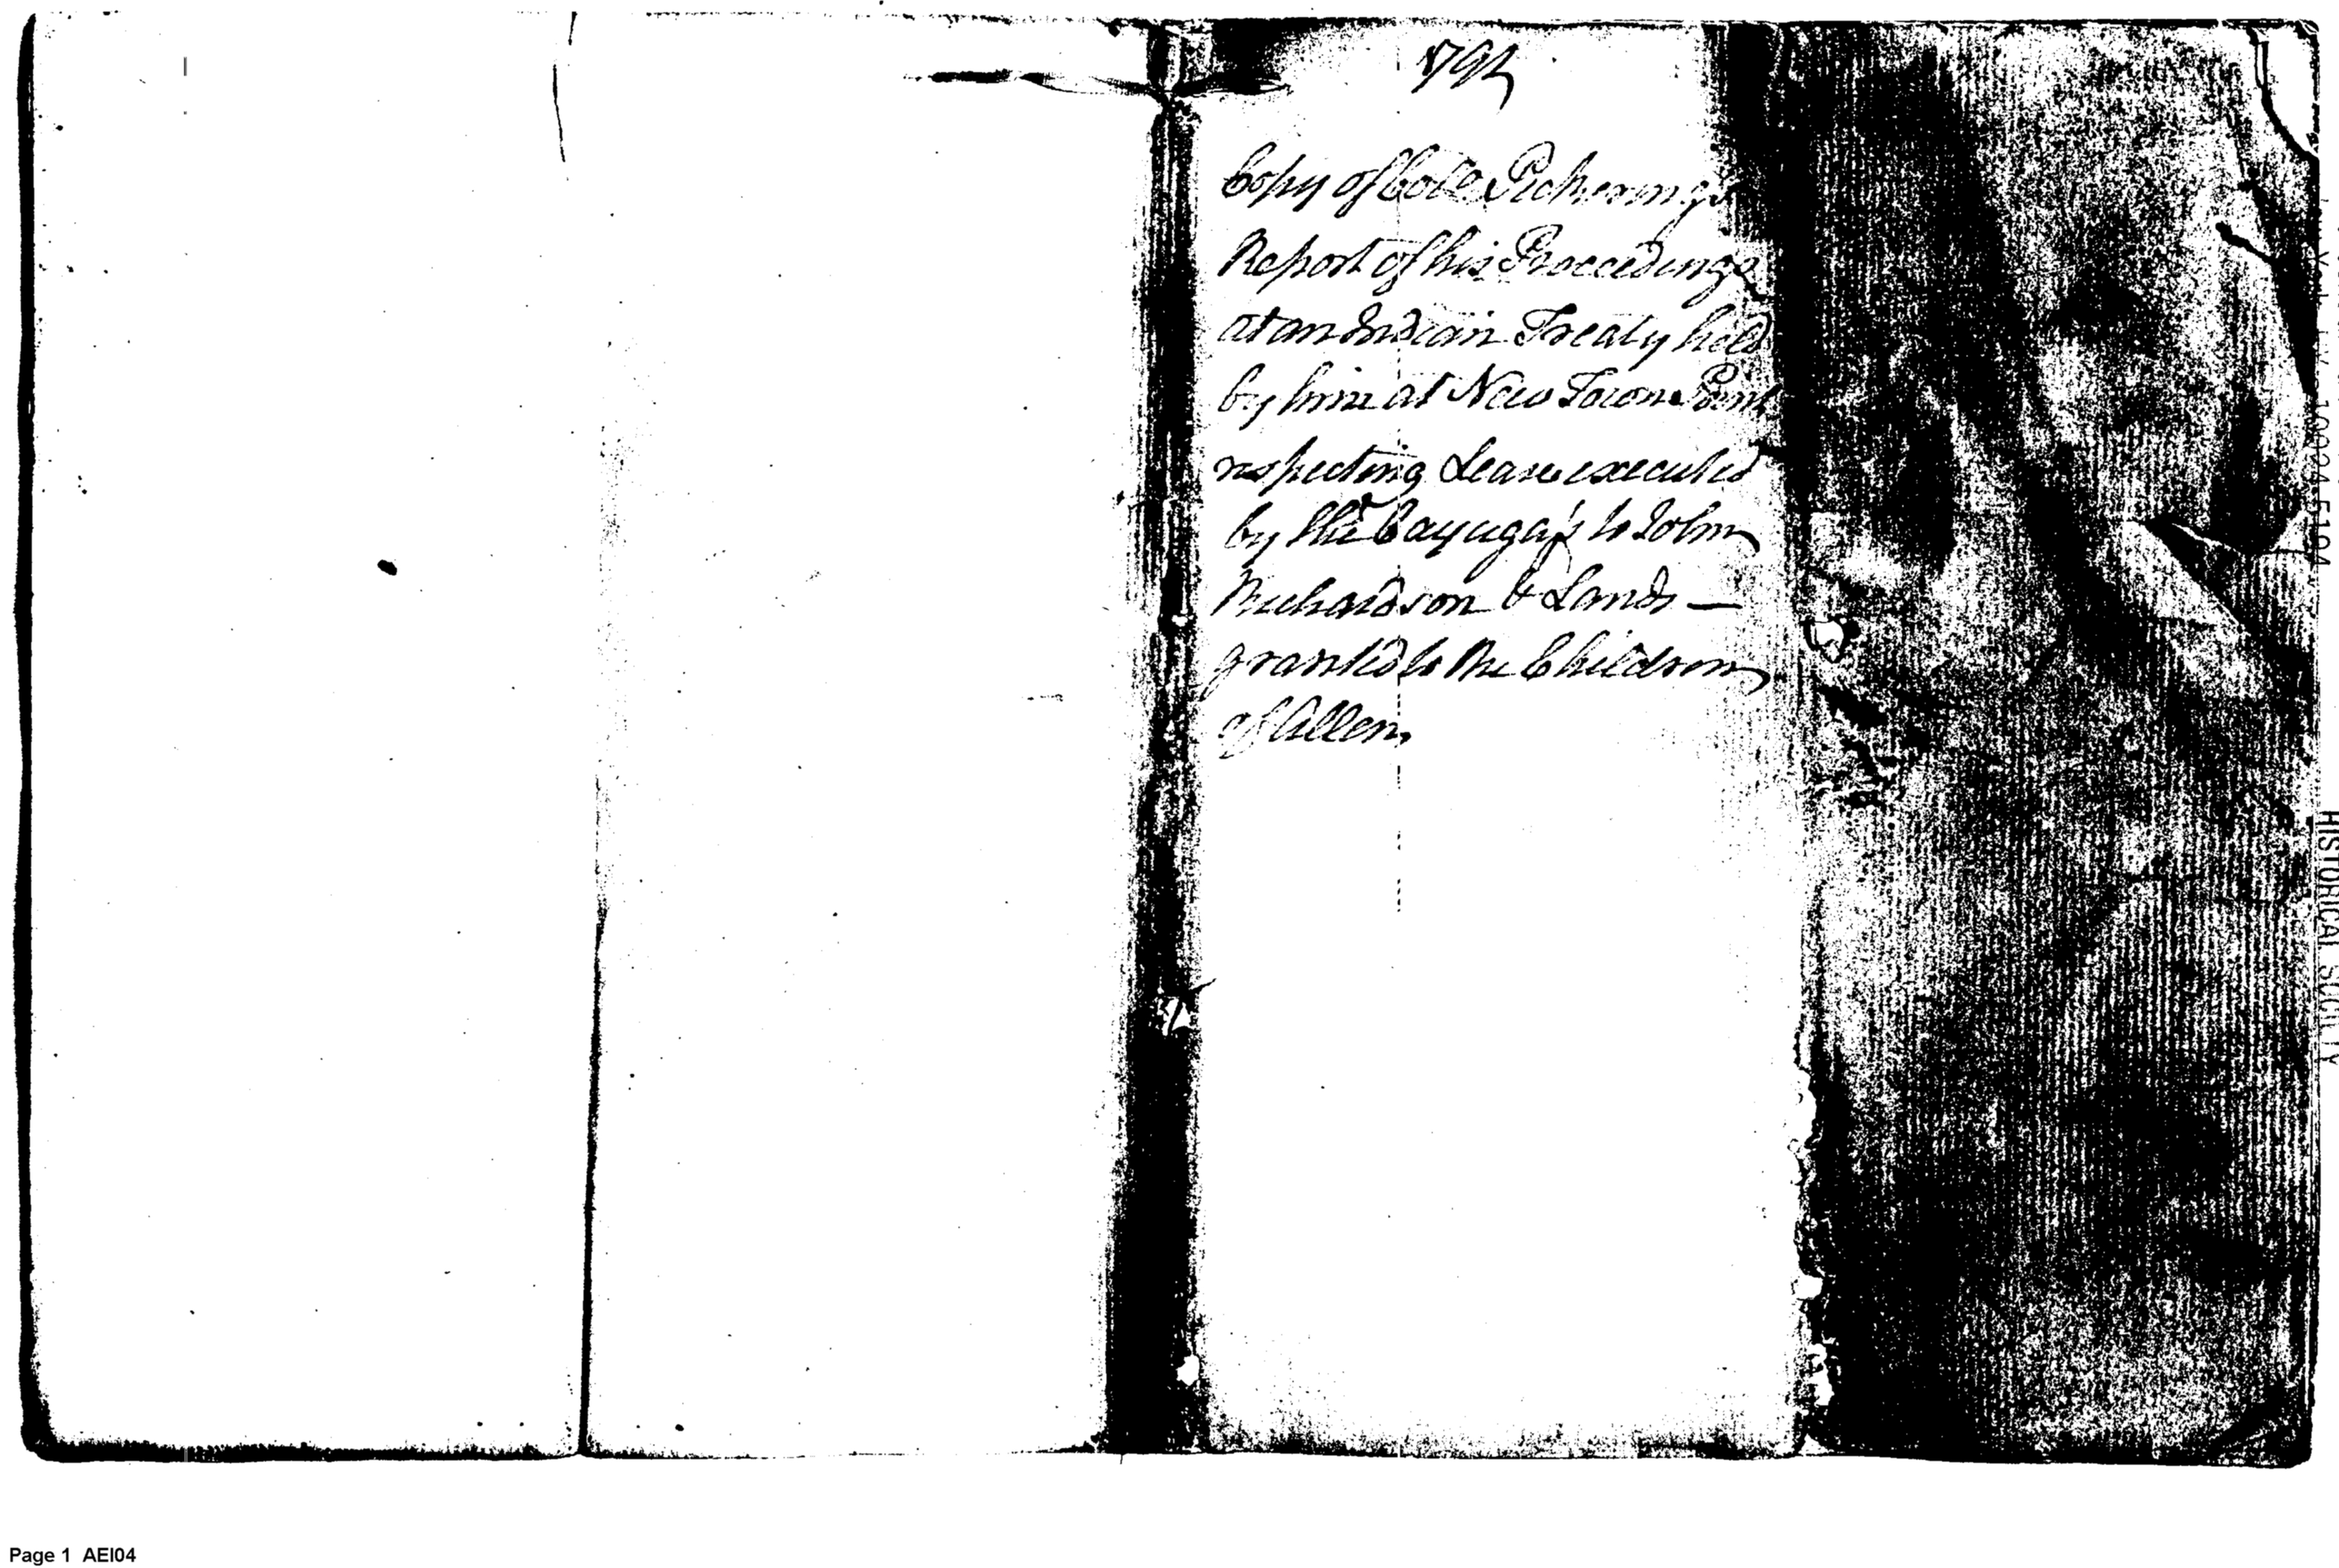 1792
Copy of Colo Pickering's
Report of his Proceedings
at an Indian Treaty held
by him at New Town Point
respecting Lease executed
by the Cayuga's to John
Richardson & Lands —
granted to the Children
of Allen.
HISTORICAL SOCIETY
10024-5194
Page 1 AEI04